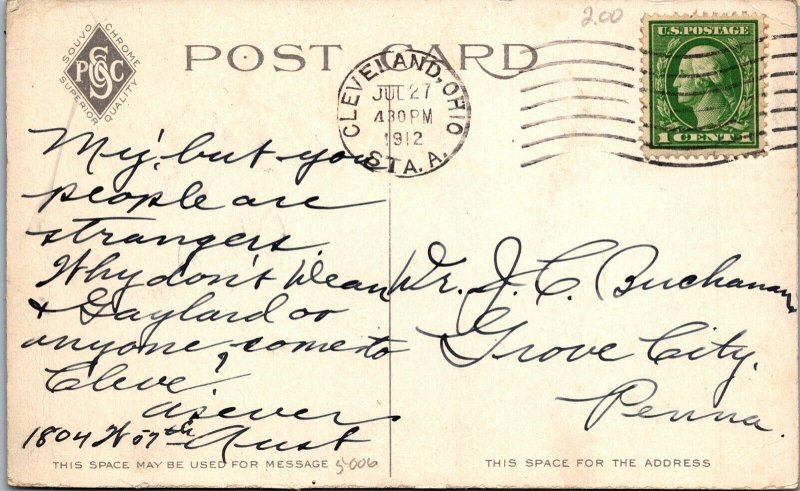 SOUVO CHROME
PSGC
SUPERIOR QUALITY
POST CARD
2.00
CLEVELAND, OHIO
JUL 27
430 PM
1912
STA. A.
U.S. POSTAGE
1 CENT 1
My, but you
people are
strangers.
Why don't Dean
& Gaylard or
anyone come to
Cleve?
As ever
Aust
1804 W 57th
Dr. J. C. Buchanan
Grove City.
Penna.
THIS SPACE MAY BE USED FOR MESSAGE
5006
THIS SPACE FOR THE ADDRESS